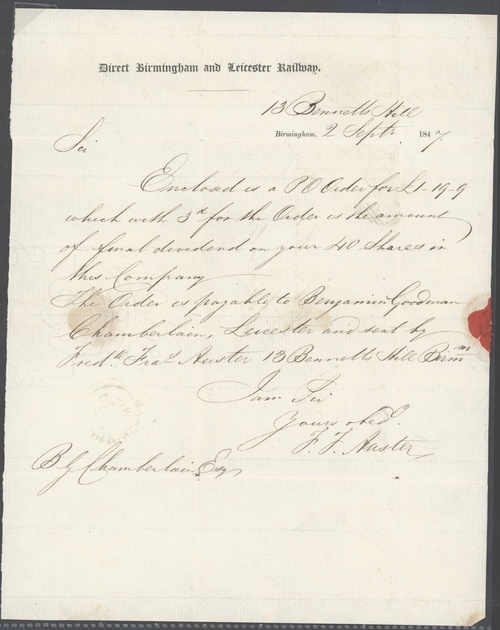 Direct Birmingham and Leicester Railway.
13 Bennetts Hill
Birmingham, 2 Septr. 1847.
Sir
Enclosed is a PO Order for £1-19-9
which with 3d for the Order is the amount
of final dividend on your 40 Shares in
this Company
The Order is payable to Benjamin Goodman
Chamberlain, Leicester and sent by
Fredk. Fras. Auster 13 Bennetts Hill Birmm
I am Sir
Yours obedt.
F. F. Auster
B G Chamberlain Esq